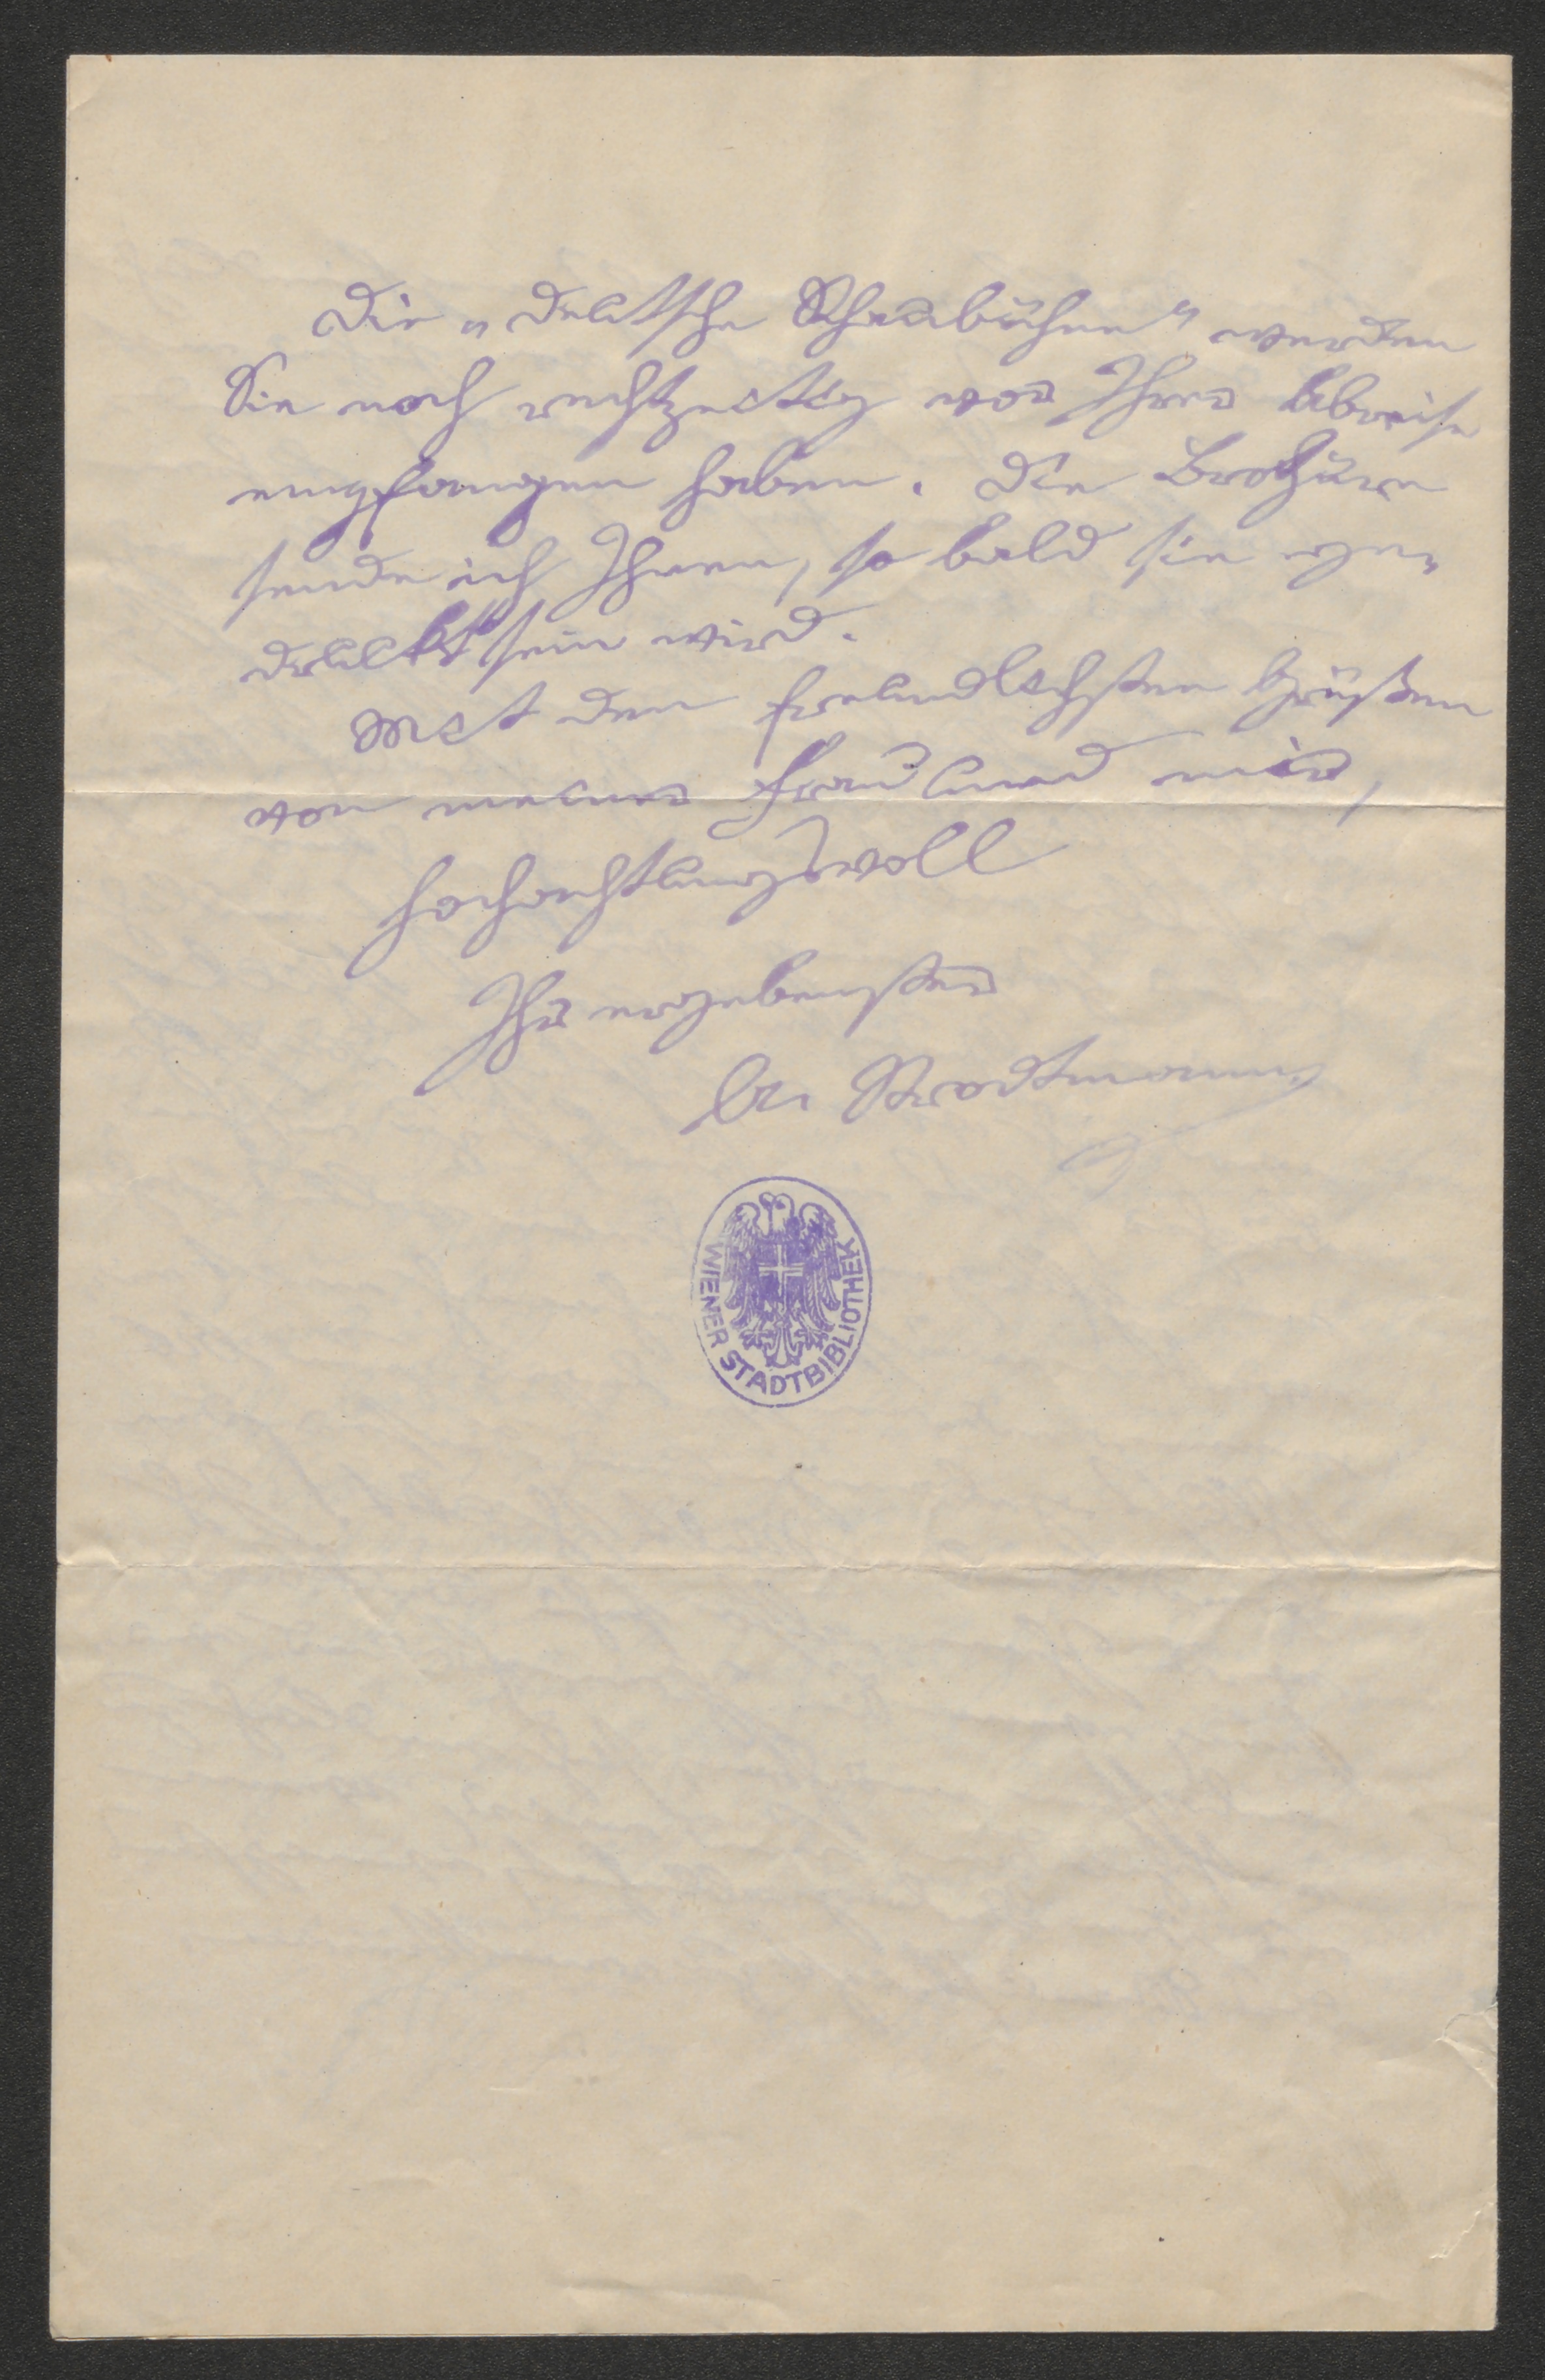 Die „Deutsche Schaubühne" werden
Sie noch rechtzeitig vor Ihrer Abreise
empfangen haben. Die Brochüre
sende ich Ihnen, so bald sie ge-
druckt sein wird.
Mit den freundlichsten Grüßen
von meiner Frau und mir,
hochachtungsvoll
Ihr ergebenster
Ad. Strodtmann
WIENER STADTBIBLIOTHEK